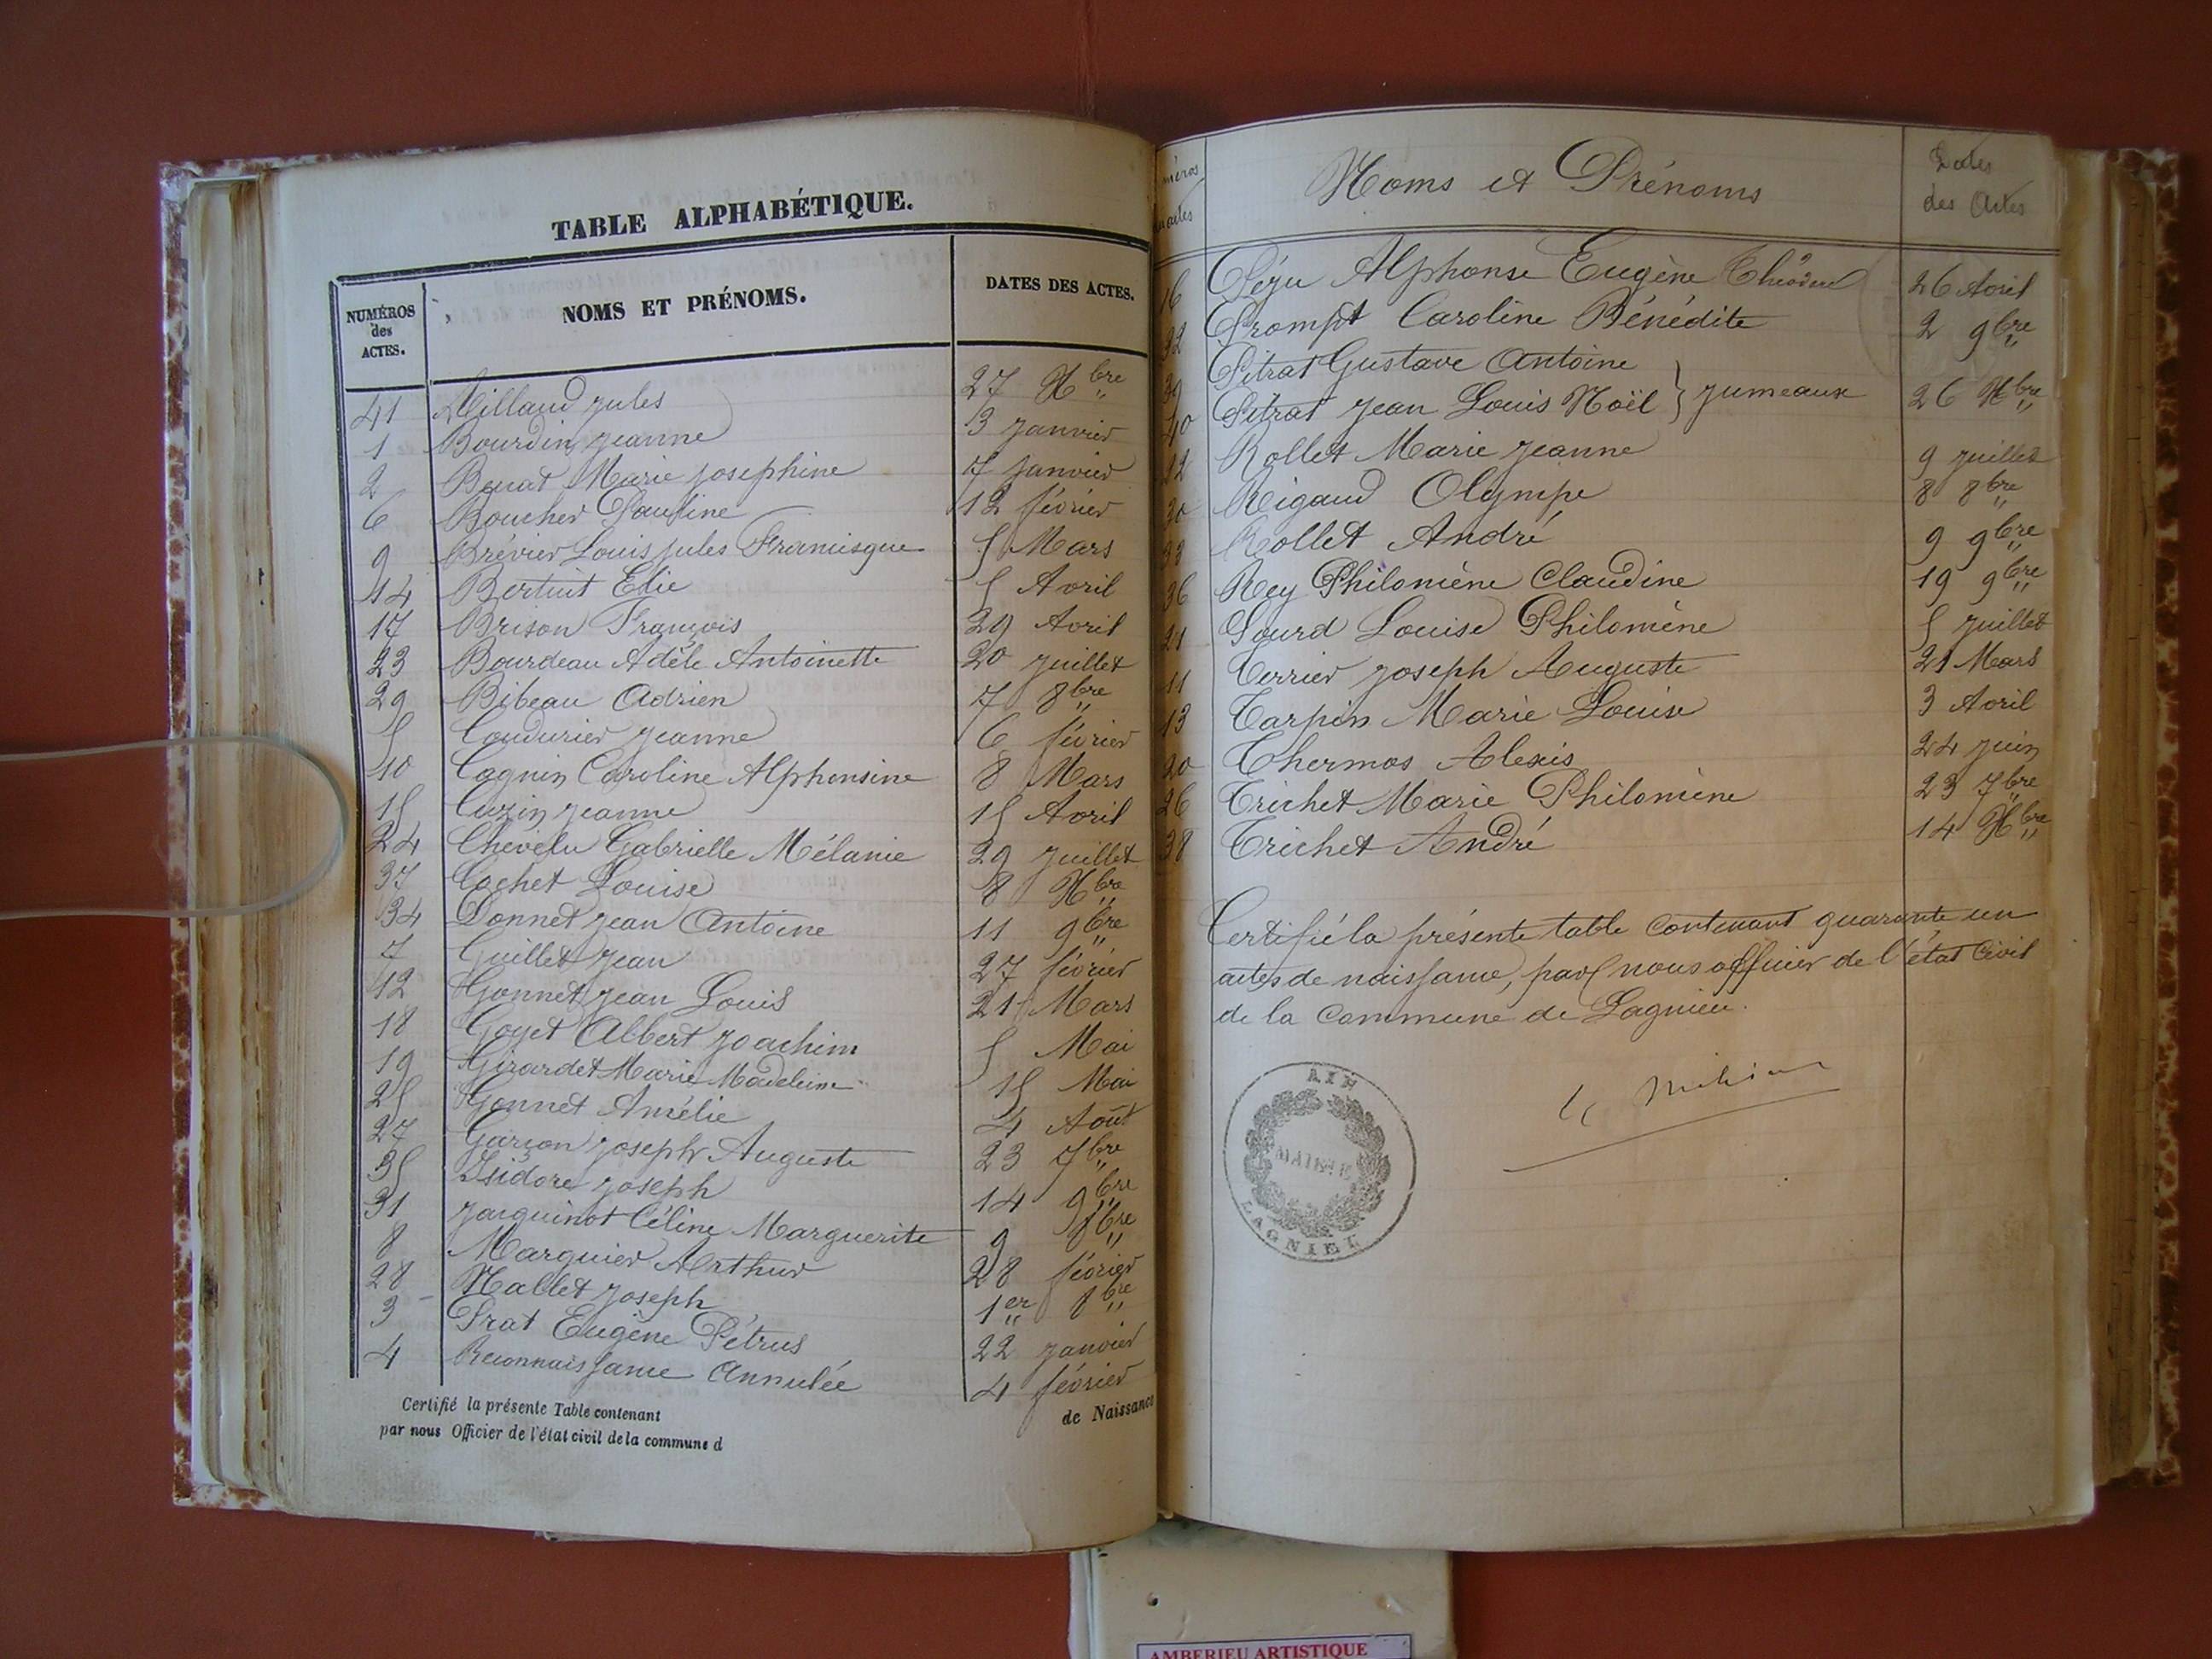 TABLE ALPHABÉTIQUE.
NUMÉROS des ACTES. NOMS ET PRÉNOMS. DATES DES ACTES.
41 Millaud Jules 27 Xbre
1 Bourdin Jeanne 3 Janvier
2 Marie Josephine 7 Janvier
6 Boucher Pauline 12 février
9 Brévier Louis Jules Francisque 5 Mars
14 Bertuit Elie 5 Avril
17 Brison François 29 Avril
23 Bourdeau Adèle Antoinette 20 Juillet
29 Bibeau Adrien 7 8bre
5 Coudurier Jeanne 6 février
10 Cagnin Caroline Alphonsine 8 Mars
15 Cuzin Jeanne 15 Avril
24 Chevelu Gabrielle Mélanie 29 Juillet
37 Cochet Louise 8 Xbre
34 Donnet Jean Antoine 11 9bre
7 Guillet Jean 27 février
12 Gonnet Jean Louis 21 Mars
18 Goyet Albert Joachim 5 Mai
19 Girardet Marie Madeleine 15 Mai
25 Gonnet Amélie 4 Août
27 Garcon Joseph Auguste 23 7bre
35 Isidore Joseph 14 9bre
31 Jacquinot Céline Marguerite 9 8bre
8 Marquier Arthur 28 février
28 Nallet Joseph 1er 8bre
3 Prat Eugène Pétrus 22 Janvier
4 Reconnaissance Annulée 4 février
Certifié la présente Table contenant de Naissance
par nous Officier de l'état civil de la commune d
méros Noms et Prénoms Dates
actes des Actes
16 Péju Alphonse Eugène Théodore 26 Avril
32 Prompt Caroline Bénédite 2 9bre
39 Pitrat Gustave Antoine
40 Pitrat Jean Louis Noël } Jumeaux 26 Xbre
22 Rollet Marie Jeanne 9 Juillet
30 Rigaud Olympe 8 8bre
33 Rollet André 9 9bre
36 Rey Philomène Claudine 19 9bre
21 Sourd Louise Philomène 5 Juillet
11 Terrier Joseph Auguste 21 Mars
13 Tarpin Marie Louise 3 Avril
20 Thermos Alexis 24 Juin
26 Trichet Marie Philomène 23 7bre
38 Trichet André 14 Xbre
Certifié la présente table contenant quarante un
actes de naissance, par nous officier de l'état civil
de la commune de Lagnieu.
AIN
MAIRIE
LAGNIEU
AMBERIEU ARTISTIQUE